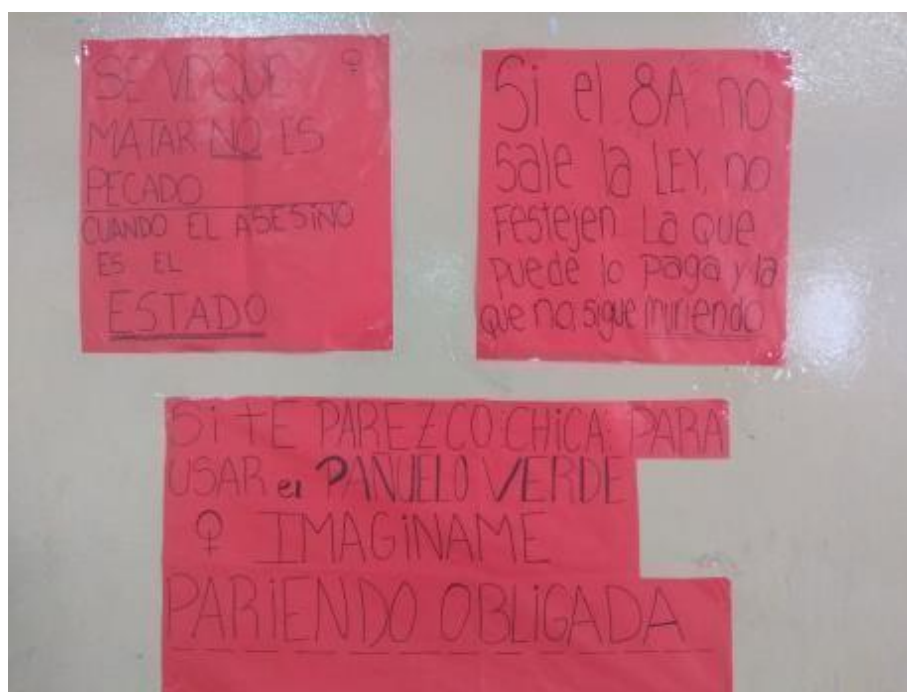 SE VE QUE ♀
MATAR NO ES
PECADO
CUANDO EL ASESINO
ES EL
ESTADO
Si el 8A no
sale la LEY, no
Festejen La que
puede lo paga y la
que no, sigue muriendo
Si TE PAREZCO CHiCA PARA
USAR el PAÑUELO VERDE
♀ IMAGiNAME
PARiENDO OBLiGADA